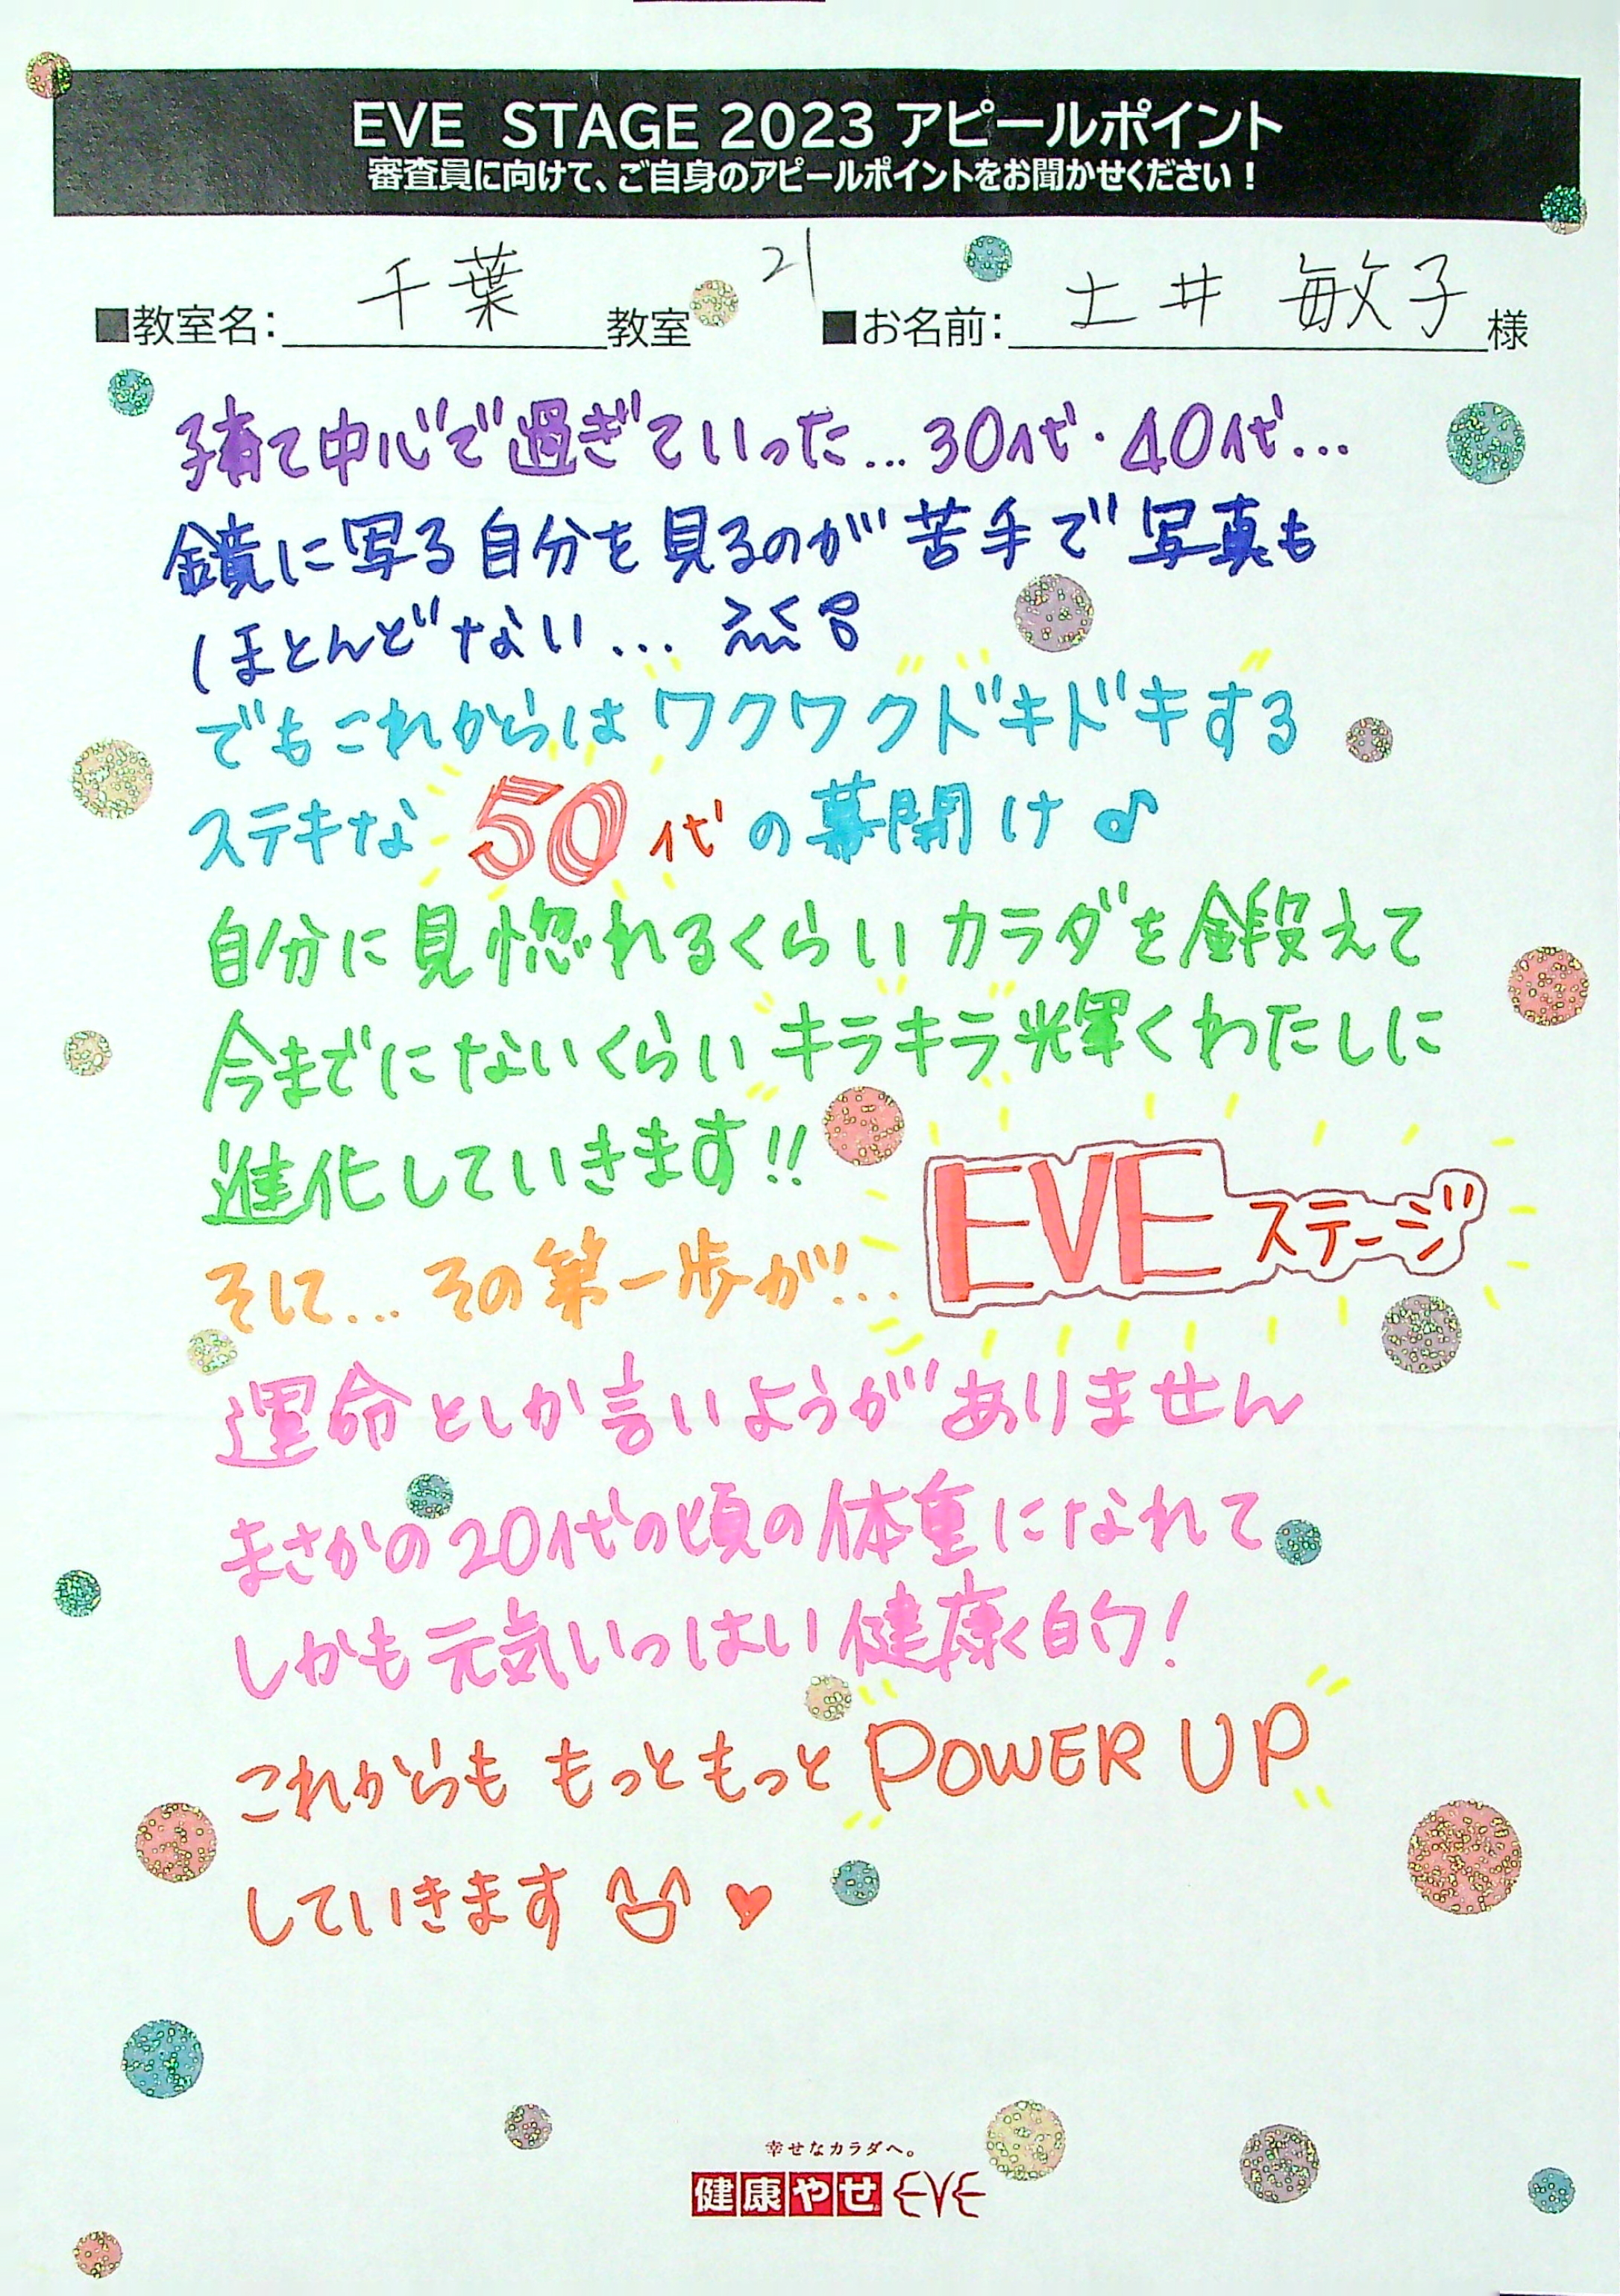 EVE STAGE 2023 アピールポイント
審査員に向けて、ご自身のアピールポイントをお聞かせください！
21
■教室名：千葉教室 ■お名前：土井 敏子様
子育て中心で過ぎていった…30代・40代…
鏡に写る自分を見るのが苦手で写真も
ほとんどない…
でもこれからはワクワクドキドキする
ステキな50代の幕開け♪
自分に見惚れるくらいカラダを鍛えて
今までにないくらいキラキラ光輝くわたしに
進化していきます!!
そして…その第一歩が…EVEステージ
運命としか言いようがありません
まさかの20代の頃の体重になれて
しかも元気いっぱい健康的！
これからももっともっとPOWER UP
していきます♥
幸せなカラダへ。
健康やせ EVE